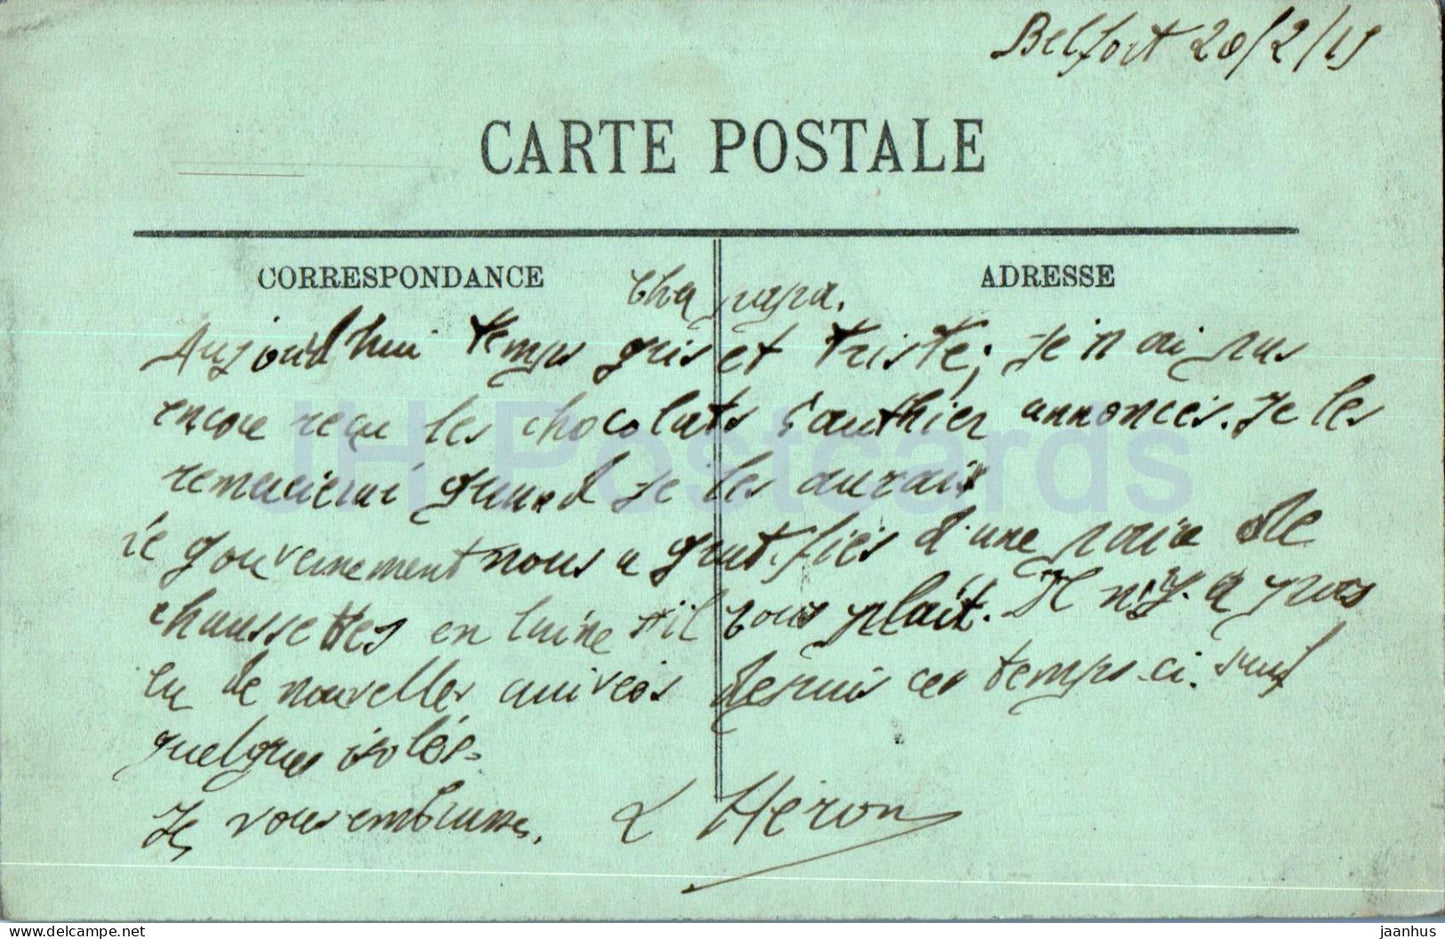 Belfort 20/2/15
CARTE POSTALE
CORRESPONDANCE
ADRESSE
Cher papa.
Aujourd'hui temps gris et triste; je n'ai pas
encore reçu les chocolats Gauthier annoncés. Je les
remercierai quand je les aurais
le gouvernement nous a gratifiés d'une paire de
chaussettes en laine s'il vous plait. Il n'y a pas
eu de nouvelles depuis ces temps-ci. sauf
quelques isolés.
Je vous embrasse. L Héron
JH Postcards
www.delcampe.net
jaanhus